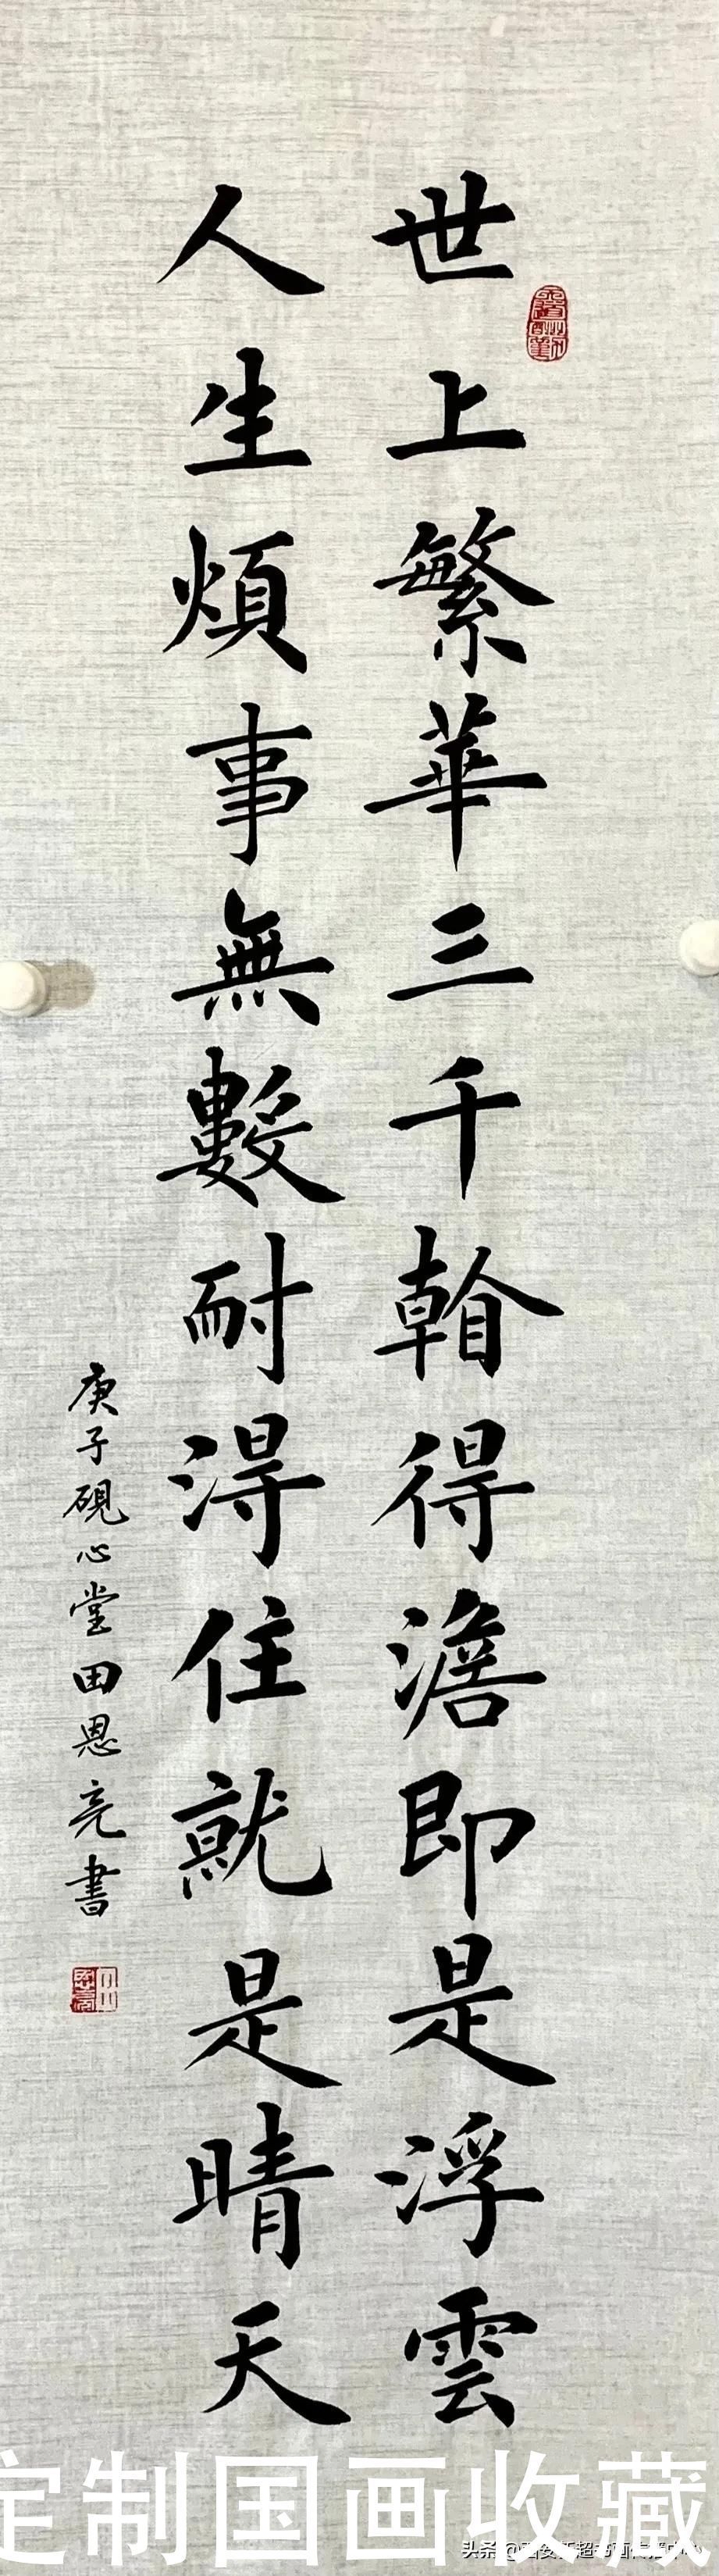 世上繁華三千看得澹即是浮雲
人生煩事無數耐淂住就是晴天
庚子硯心堂田恩亮書
定制国画收藏
头条